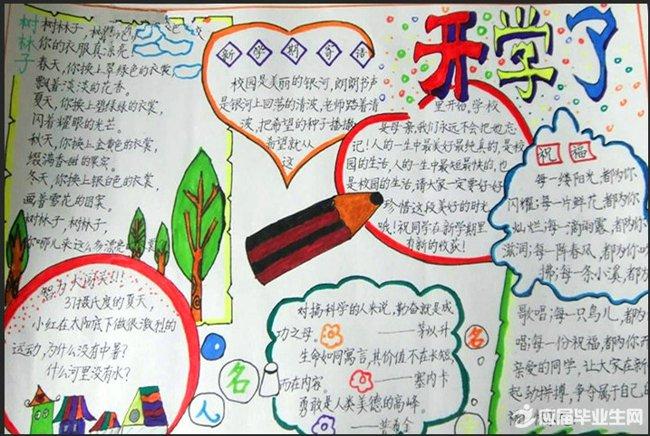 开学了
树林子
树林子,树林子
你的衣服真漂亮
春天,你换上翠绿色的衣裳
飘着淡淡的花香。
夏天,你换上碧绿绿的衣裳
闪着耀眼的光芒。
秋天,你换上金黄色的衣裳
缀满香甜的果实。
冬天,你换上银白色的衣裳
画着雪花的图案。
树林子,树林子,
你哪儿来这么多漂亮
新学期寄语
校园是美丽的银河,朗朗书声
是银河上回荡的清波,老师踏着清
波,把希望的种子播撒
希望就从
这
里开始,学校
是母亲,我们永远不会把她忘
记!人的一生中最美好最纯真的,是校
园的生活,人的一生中最短最快的,也
是校园的生活,请大家一定要好好
珍惜这段美好的时光
哦!祝同学在新学期里
有新的收获!
祝福
每一缕阳光,都为你
闪耀;每一片鲜花,都为你
灿烂;每一滴雨露,都为你
滋润;每一阵春风,都为你吹
拂;每一条小溪,都为
歌唱;每一只鸟儿,都为你
唱;每一份祝福,都为你开
亲爱的同学,让大家在新
起劲拼搏,争夺属于自己的
脑力大闯关!!!
37摄氏度的夏天,
小红在太阳底下做很激烈的
运动,为什么没有中暑?
什么河里没有水?
名人名
对搞科学的人来说,勤奋就是成
功之母 ——茅以升
生命如同寓言,其价值不在长短
而在内容。 ——塞内卡
勇敢是人类美德的高峰。
——普希金
应届毕业生网